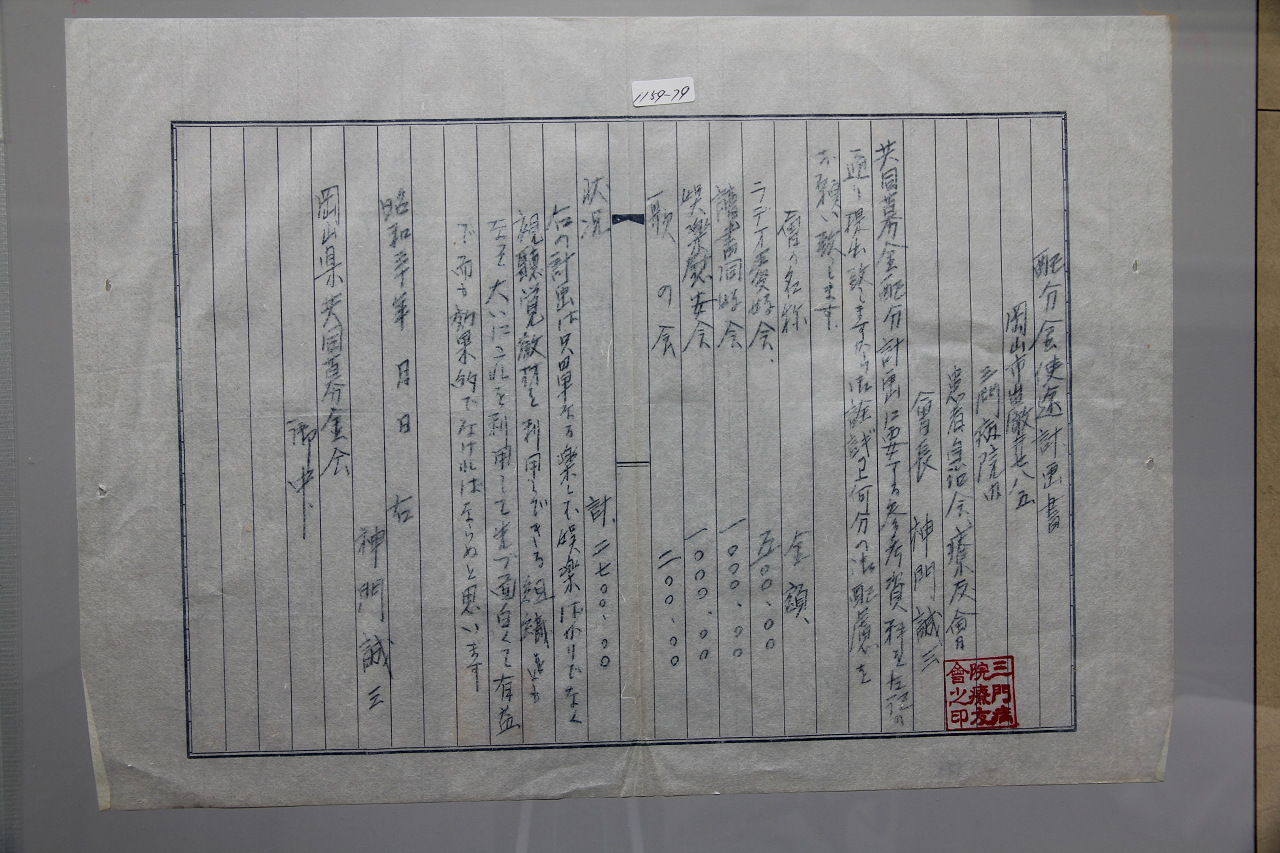 1159-79
配分金使途計画書
岡山市
三門病院内
患者自治会療友會
會長 神門誠三
三門病院療友會之印
共同募金配分計画に要する参考資料を左記の
通り提出致しますから御詮議上何分の御配慮を
お願い致します
會の名称 金額、
ラヂオ愛好会、 五〇〇、〇〇
読書同好会 一〇〇〇、〇〇
娯楽慰安会 一〇〇〇、〇〇
歌の会 二〇〇、〇〇
計、二七〇〇、〇〇
状況
右の計画は只単なる楽しみ娯楽ばかりでなく
視聴覚 を利用しできる組織
大いにこれを利用して まづ面白くて有益
で而も効果的でなければならぬと思います
昭和三十年 月 日 右
神門誠三
岡山県共同募金会
御中